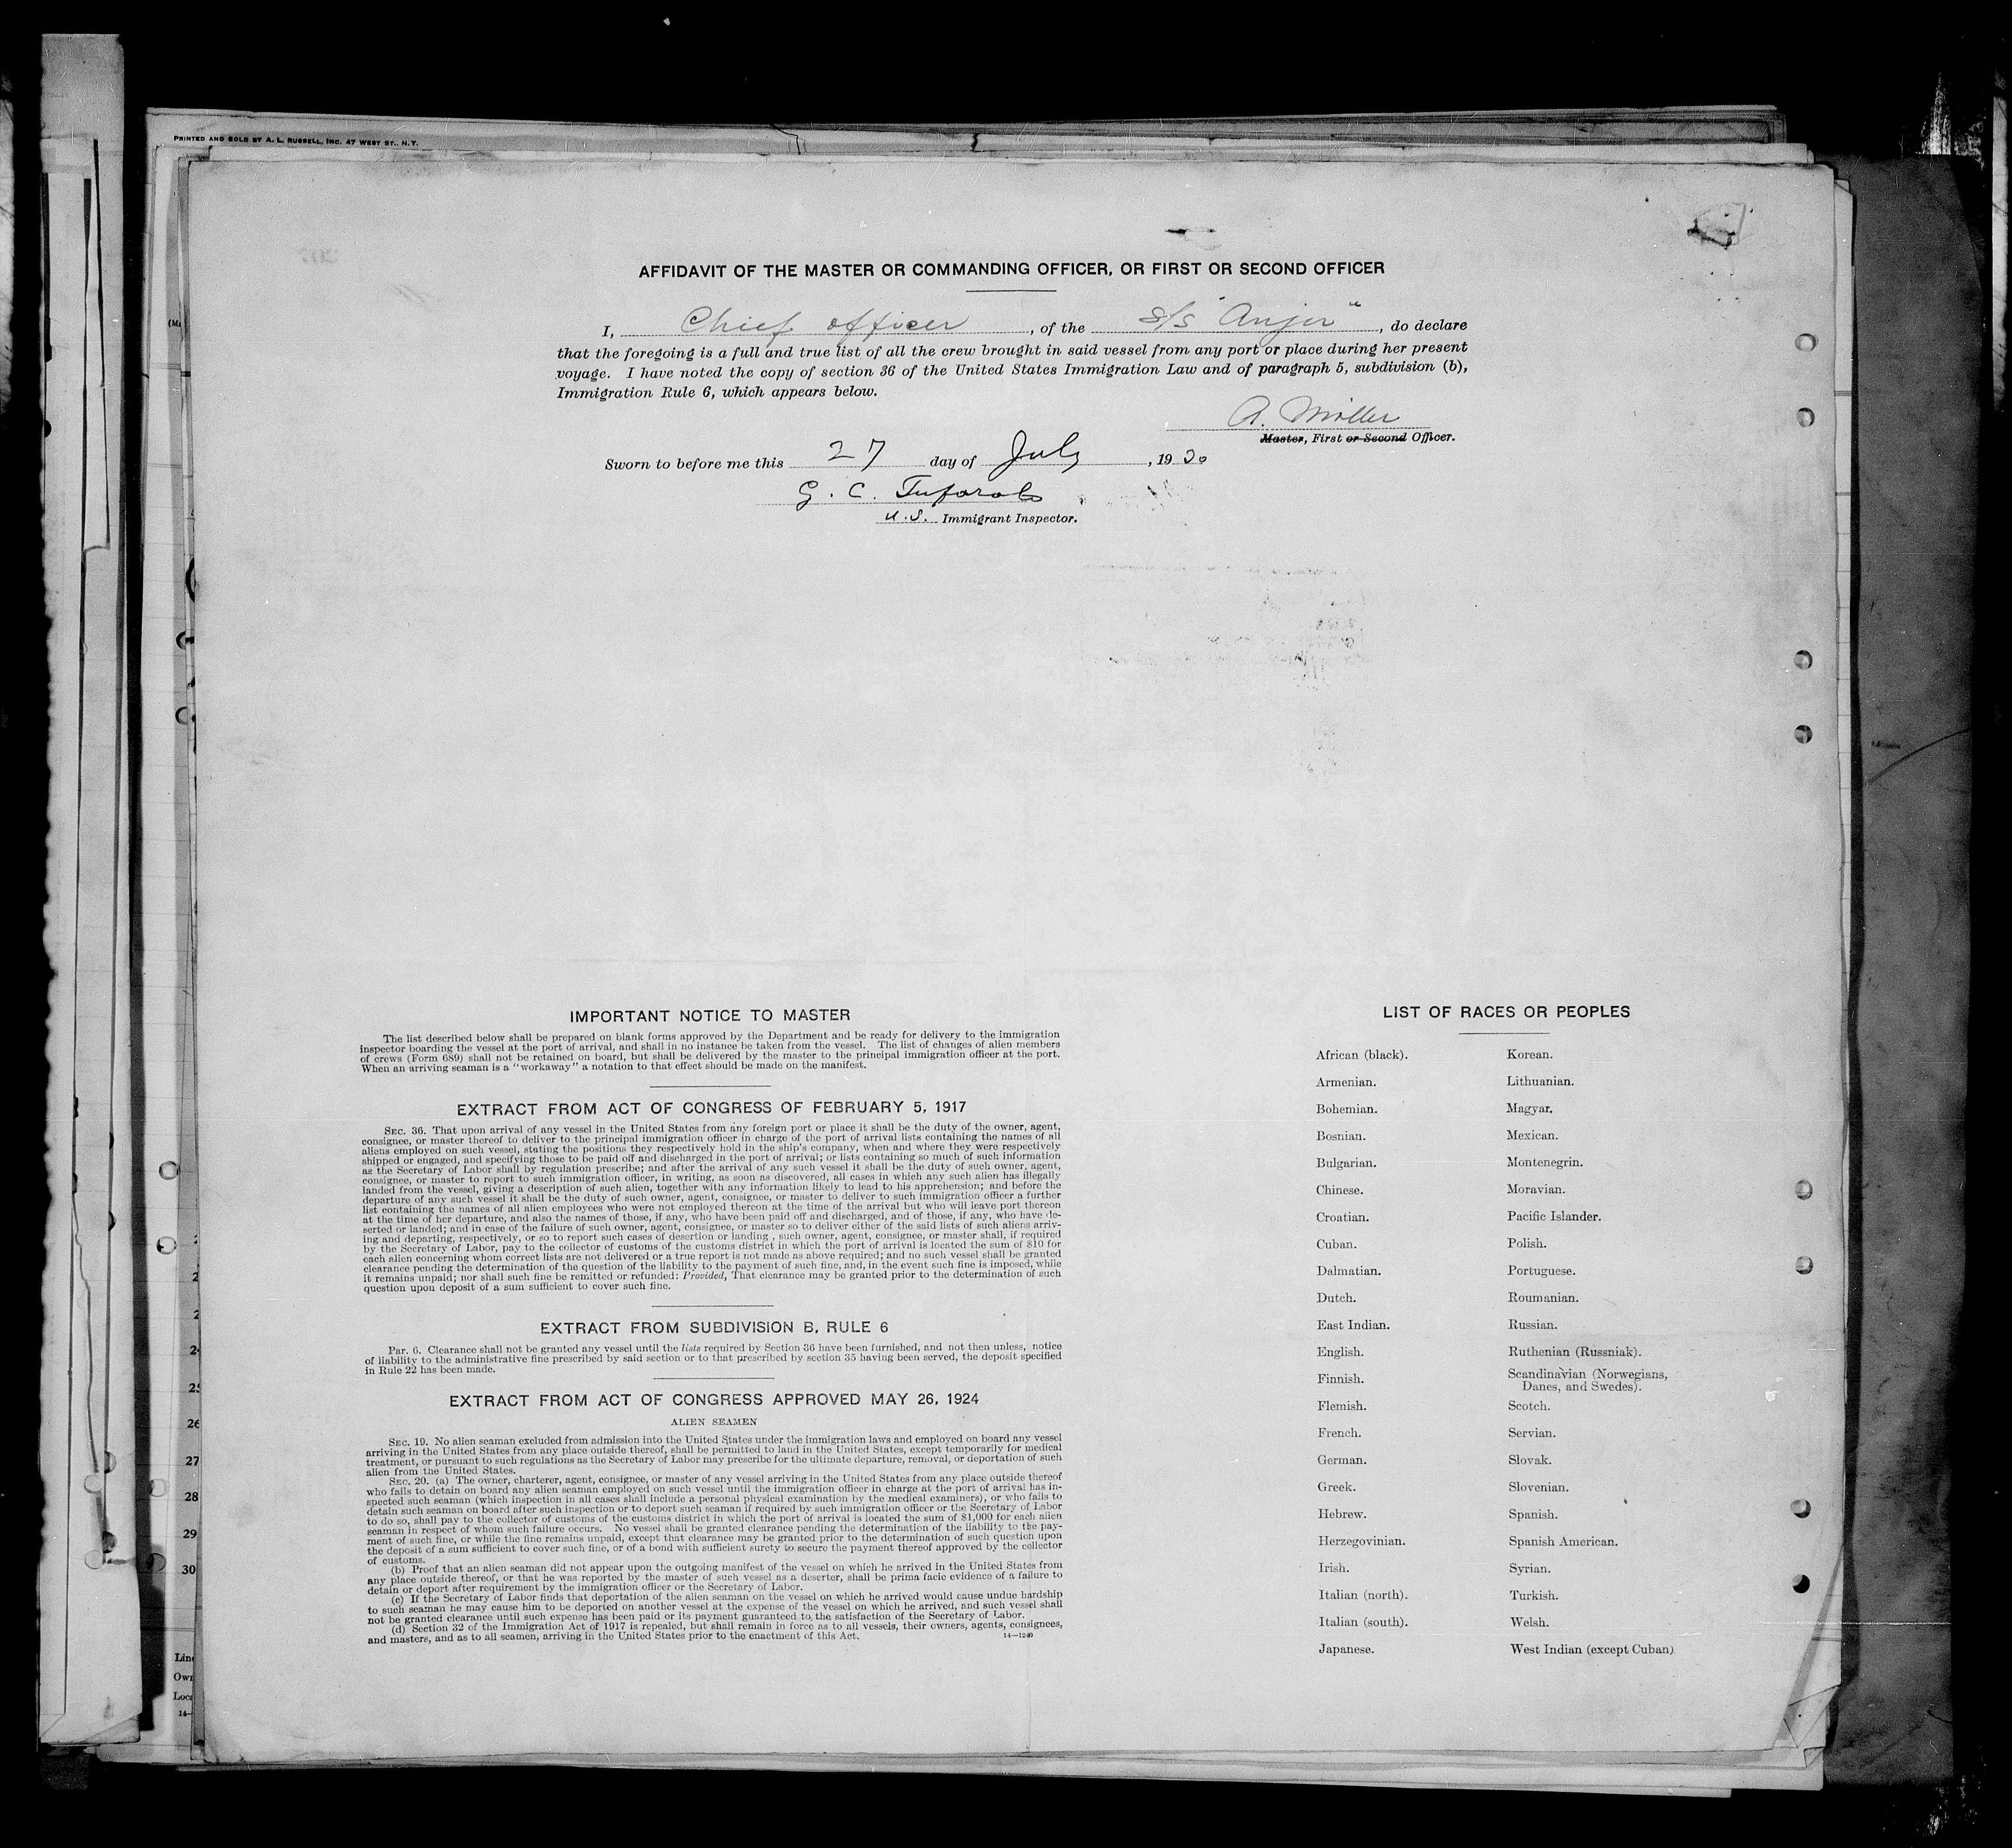 PRINTED AND SOLD BY A. L. RUSSELL, INC. 47 WEST ST., N.Y.
AFFIDAVIT OF THE MASTER OR COMMANDING OFFICER, OR FIRST OR SECOND OFFICER
I, Chief officer, of the s/s "Anjer", do declare
that the foregoing is a full and true list of all the crew brought in said vessel from any port or place during her present
voyage. I have noted the copy of section 36 of the United States Immigration Law and of paragraph 5, subdivision (b),
Immigration Rule 6, which appears below.
A. Möller
Master, First or Second Officer.
Sworn to before me this 27 day of July, 1930
G. C.
U.S. Immigrant Inspector.
IMPORTANT NOTICE TO MASTER
The list described below shall be prepared on blank forms approved by the Department and be ready for delivery to the immigration
inspector boarding the vessel at the port of arrival, and shall in no instance be taken from the vessel. The list of changes of alien members
of crews (Form 689) shall not be retained on board, but shall be delivered by the master to the principal immigration officer at the port.
When an arriving seaman is a "workaway" a notation to that effect should be made on the manifest.
EXTRACT FROM ACT OF CONGRESS OF FEBRUARY 5, 1917
SEC. 36. That upon arrival of any vessel in the United States from any foreign port or place it shall be the duty of the owner, agent,
consignee, or master thereof to deliver to the principal immigration officer in charge of the port of arrival lists containing the names of all
aliens employed on such vessel, stating the positions they respectively hold in the ship's company, when and where they were respectively
shipped or engaged, and specifying those to be paid off and discharged in the port of arrival; or lists containing so much of such information
as the Secretary of Labor shall by regulation prescribe; and after the arrival of any such vessel it shall be the duty of such owner, agent,
consignee, or master to report to such immigration officer, in writing, as soon as discovered, all cases in which any such alien has illegally
landed from the vessel, giving a description of such alien, together with any information likely to lead to his apprehension; and before the
departure of any such vessel it shall be the duty of such owner, agent, consignee, or master to deliver to such immigration officer a further
list containing the names of all alien employees who were not employed thereon at the time of the arrival but who will leave port thereon
at the time of her departure, and also the names of those, if any, who have been paid off and discharged, and of those, if any, who have de-
serted or landed; and in case of the failure of such owner, agent, consignee, or master so to deliver either of the said lists of such aliens arriv-
ing and departing, respectively, or so to report such cases of desertion or landing, such owner, agent, consignee, or master shall, if required
by the Secretary of Labor, pay to the collector of customs of the customs district in which the port of arrival is located the sum of $10 for
each alien concerning whom correct lists are not delivered or a true report is not made as above required; and no such vessel shall be granted
clearance pending the determination of the question of the liability to the payment of such fine, and, in the event such fine is imposed, while
it remains unpaid; nor shall such fine be remitted or refunded: Provided, That clearance may be granted prior to the determination of such
question upon deposit of a sum sufficient to cover such fine.
EXTRACT FROM SUBDIVISION B, RULE 6
Par. 6. Clearance shall not be granted any vessel until the lists required by Section 36 have been furnished, and not then unless, notice
of liability to the administrative fine prescribed by said section or to that prescribed by section 35 having been served, the deposit specified
in Rule 22 has been made.
EXTRACT FROM ACT OF CONGRESS APPROVED MAY 26, 1924
ALIEN SEAMEN
SEC. 19. No alien seaman excluded from admission into the United States under the immigration laws and employed on board any vessel
arriving in the United States from any place outside thereof, shall be permitted to land in the United States, except temporarily for medical
treatment, or pursuant to such regulations as the Secretary of Labor may prescribe for the ultimate departure, removal, or deportation of such
alien from the United States.
SEC. 20. (a) The owner, charterer, agent, consignee, or master of any vessel arriving in the United States from any place outside thereof
who fails to detain on board any alien seaman employed on such vessel until the immigration officer in charge at the port of arrival has in-
spected such seaman (which inspection in all cases shall include a personal physical examination by the medical examiners), or who fails to
detain such seaman on board after such inspection or to deport such seaman if required by such immigration officer or the Secretary of Labor
to do so, shall pay to the collector of customs of the customs district in which the port of arrival is located the sum of $1,000 for each alien
seaman in respect of whom such failure occurs. No vessel shall be granted clearance pending the determination of the liability to the pay-
ment of such fine, or while the fine remains unpaid, except that clearance may be granted prior to the determination of such question upon
the deposit of a sum sufficient to cover such fine, or of a bond with sufficient surety to secure the payment thereof approved by the collector
of customs.
(b) Proof that an alien seaman did not appear upon the outgoing manifest of the vessel on which he arrived in the United States from
any place outside thereof, or that he was reported by the master of such vessel as a deserter, shall be prima facie evidence of a failure to
detain or deport after requirement by the immigration officer or the Secretary of Labor.
(c) If the Secretary of Labor finds that deportation of the alien seaman on the vessel on which he arrived would cause undue hardship
to such seaman he may cause him to be deported on another vessel at the expense of the vessel on which he arrived, and such vessel shall
not be granted clearance until such expense has been paid or its payment guaranteed to the satisfaction of the Secretary of Labor.
(d) Section 32 of the Immigration Act of 1917 is repealed, but shall remain in force as to all vessels, their owners, agents, consignees,
and masters, and as to all seamen, arriving in the United States prior to the enactment of this Act.
14—1240
LIST OF RACES OR PEOPLES
African (black).
Armenian.
Bohemian.
Bosnian.
Bulgarian.
Chinese.
Croatian.
Cuban.
Dalmatian.
Dutch.
East Indian.
English.
Finnish.
Flemish.
French.
German.
Greek.
Hebrew.
Herzegovinian.
Irish.
Italian (north).
Italian (south).
Japanese.
Korean.
Lithuanian.
Magyar.
Mexican.
Montenegrin.
Moravian.
Pacific Islander.
Polish.
Portuguese.
Roumanian.
Russian.
Ruthenian (Russniak).
Scandinavian (Norwegians,
Danes, and Swedes).
Scotch.
Servian.
Slovak.
Slovenian.
Spanish.
Spanish American.
Syrian.
Turkish.
Welsh.
West Indian (except Cuban)
26
27
28
29
30